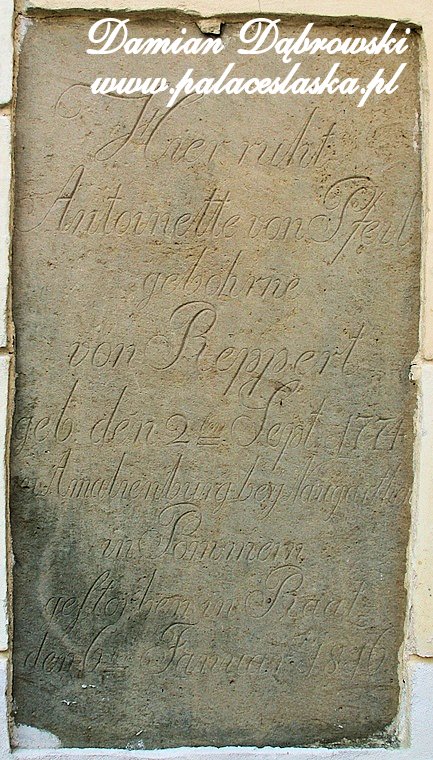 Damian Dąbrowski
www.palaceslaska.pl
Hier ruht
Antoinette von Pfeil
gebohrne
von Reppert
geb. den 2ten Sept. 1774
Amalienburg bey
in Pommern
gestorben in Raal
den 6ten Januar 1816